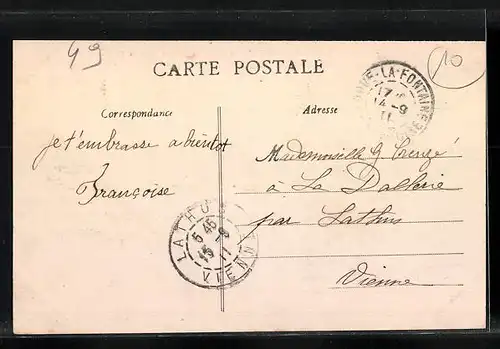 49
10
CARTE POSTALE
Correspondance
Adresse
LA-FONTAINE
14-9
11
je t'embrasse a bientôt
Françoise
Mademoiselle G
à La Dallerie
par Lathus
Vienne
LATHUS
5 45
15-9
11
VIENNE